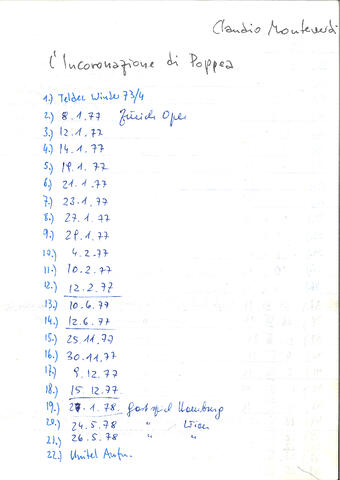 Claudio Monteverdi
L'Incoronazione di Poppea
1.) Teldec Winter 73/4
2.) 8.1.77 Zürich Oper
3.) 12.1.77
4.) 14.1.77
5.) 19.1.77
6.) 21.1.77
7.) 23.1.77
8.) 27.1.77
9.) 29.1.77
10.) 4.2.77
11.) 10.2.77
12.) 12.2.77
13.) 10.6.77
14.) 12.6.77
15.) 25.11.77
16.) 30.11.77
17.) 9.12.77
18.) 15.12.77
19.) 27.1.78. Gastspiel Hamburg
20.) 24.5.78 " Wien
21.) 26.5.78 " "
22.) Unitel Aufn.